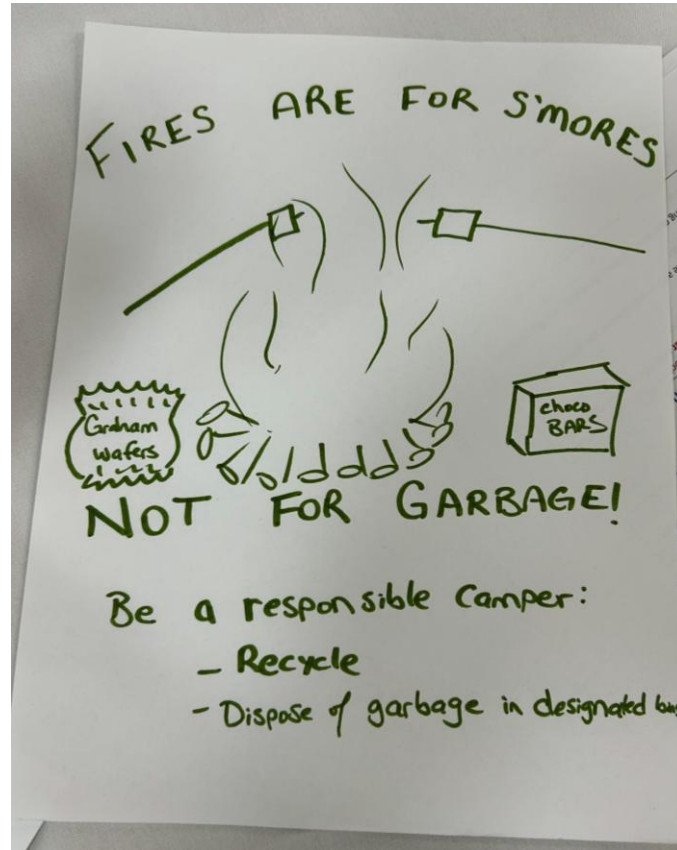 FIRES ARE FOR S'MORES
Graham
wafers
choco
BARS
NOT FOR GARBAGE!
Be a responsible camper:
- Recycle
- Dispose of garbage in designated